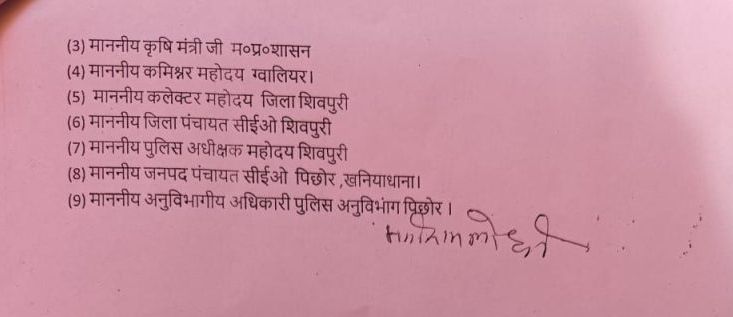 (3) माननीय कृषि मंत्री जी म०प्र०शासन
(4) माननीय कमिश्नर महोदय ग्वालियर।
(5) माननीय कलेक्टर महोदय जिला शिवपुरी
(6) माननीय जिला पंचायत सीईओ शिवपुरी
(7) माननीय पुलिस अधीक्षक महोदय शिवपुरी
(8) माननीय जनपद पंचायत सीईओ पिछोर ,खनियाधाना।
(9) माननीय अनुविभागीय अधिकारी पुलिस अनुविभाग पिछोर ।
लोधी